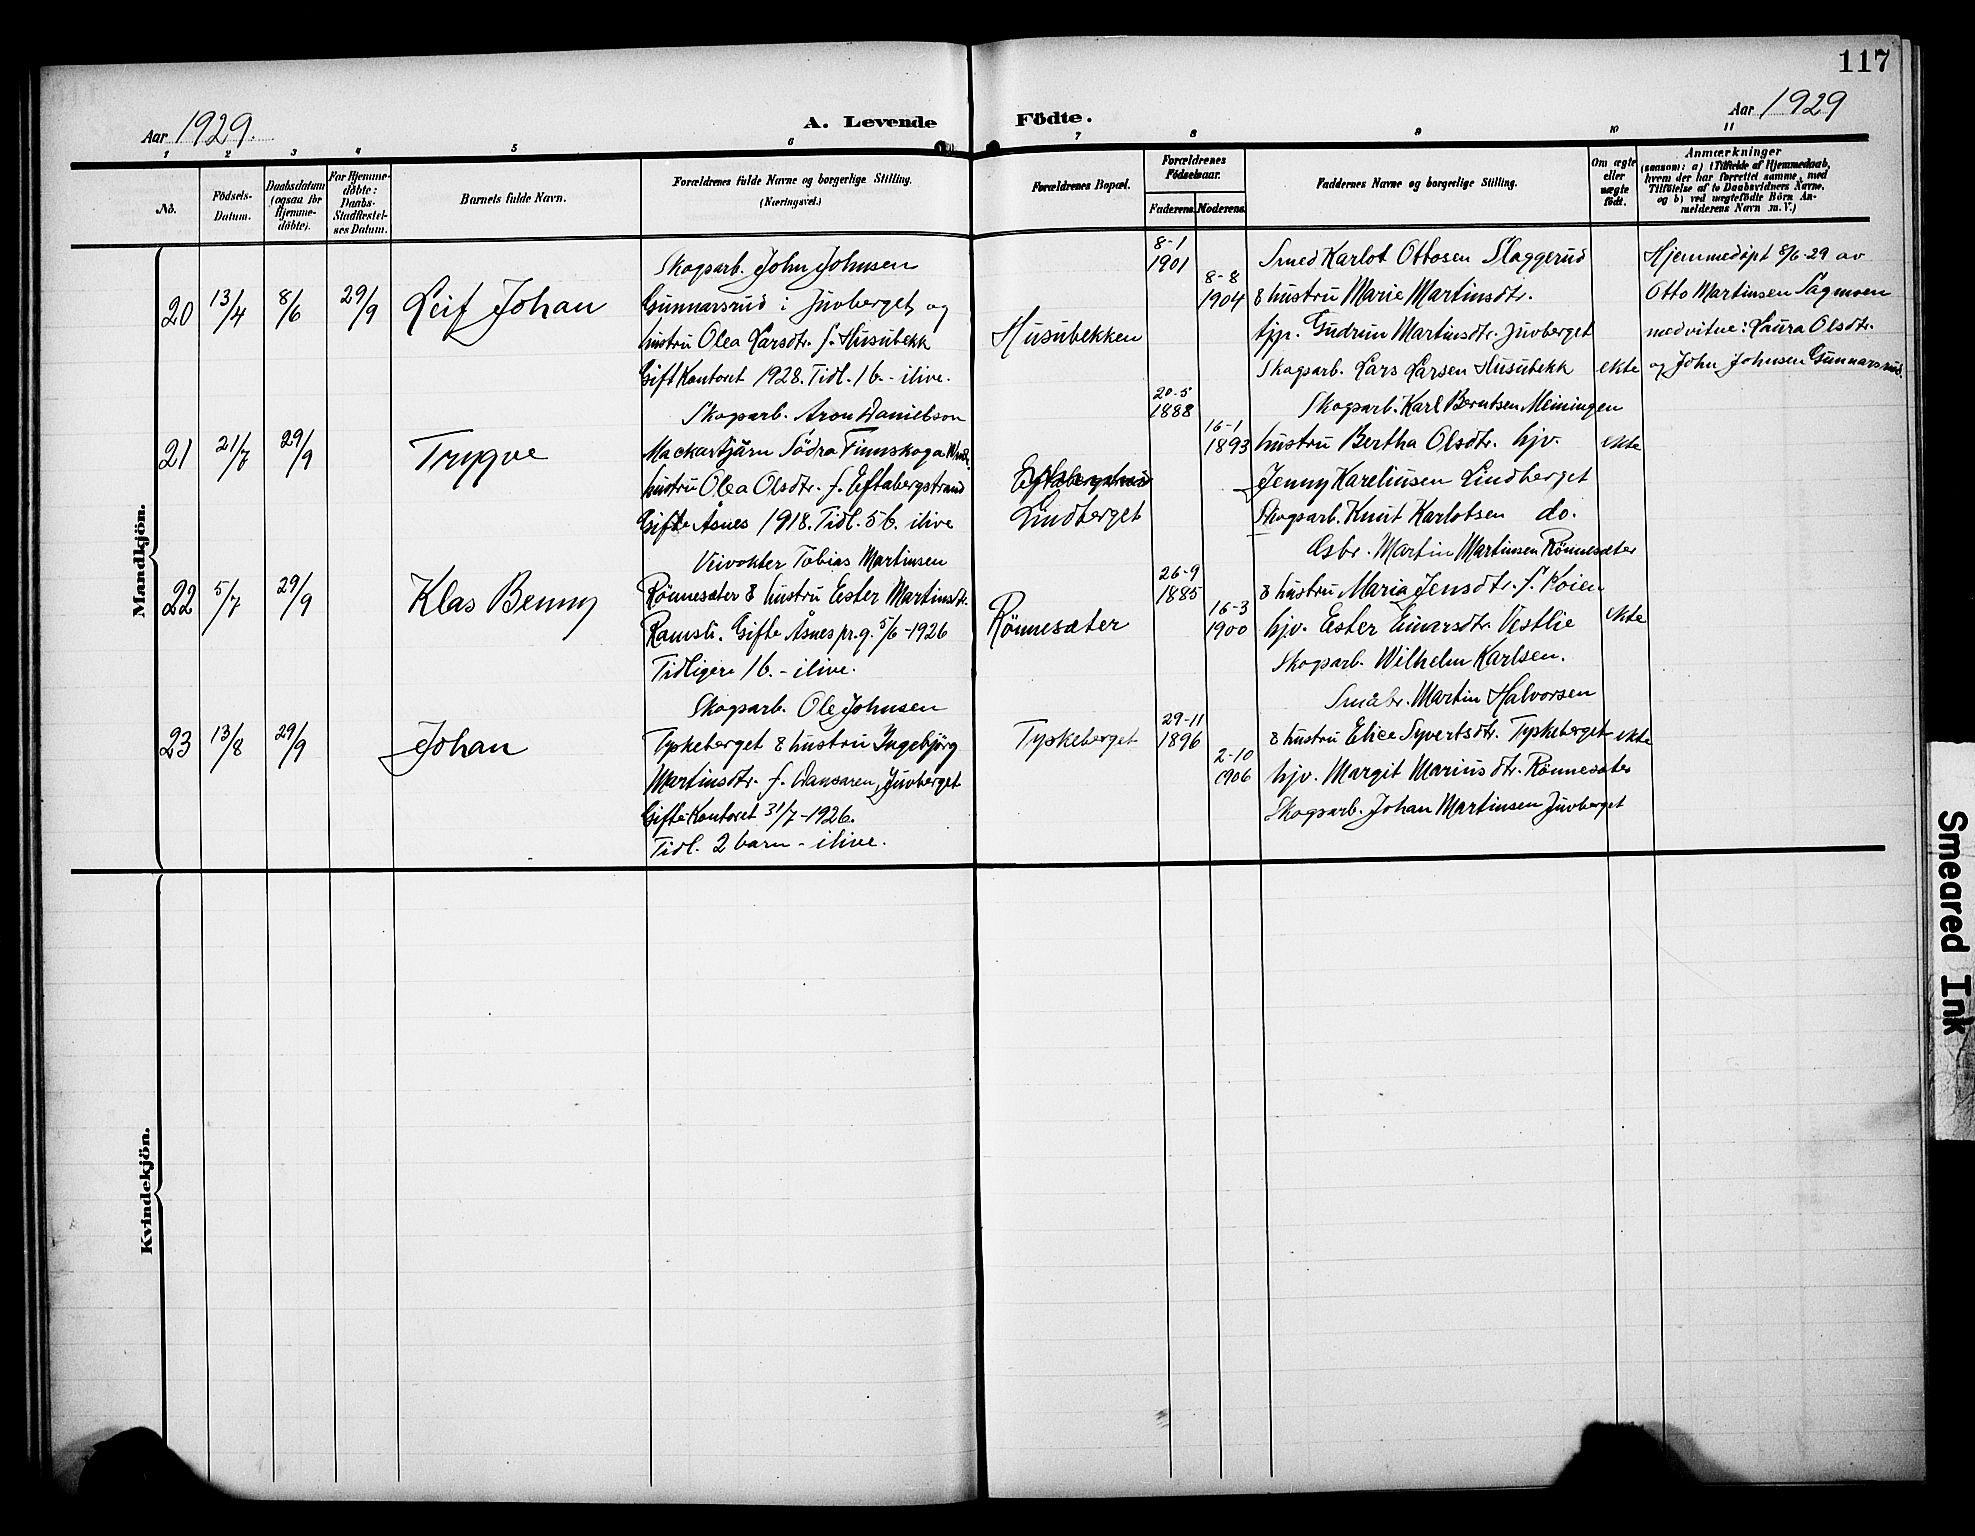 117
Aar 1929.
A. Levende Födte.
Aar 1929
1 2 3 4 5 6 7 8 9 10 11
No.
Födsels-
Datum.
Daabsdatum
(ogsaa for
Hjemme-
döbte).
For Hjemme-
döbte:
Daabs-
Stadfæstel-
ses Datum.
Barnets fulde Navn.
Forældrenes fulde Navne og borgerlige Stilling.
(Næringsvei.)
Forældrenes Bopæl.
Forældrenes
Födselsaar.
Faderens. Moderens.
Faddernes Navne og borgerlige Stilling.
Om ægte
eller
uægte
födt.
Anmærkninger
(saasom: a) i Tilfælde af Hjemmedaab,
hvem der har forrettet samme, med
Tilföielse af to Daabsvidners Navne.
og b) ved uægtefödte Börn An-
melderens Navn m. V.)
Mandkjön.
20
13/4
8/6
29/9
Leif Johan
Skogsarb. John Johnsen
Gunnarsrud i Juvberget og
hustru Olea Larsdtr. f. Husubekk
Gift Kontoret 1928. Tidl. 1 b. - ilive.
Husubekken
8-1
1901
8-8
1904
Smed Karlot Ottosen Slaggerud
& hustru Marie Martinsdtr.
tjp. Gudrun Martinsdtr. Juvberget
Skogsarb. Lars Larsen Husubekk
ekte
Hjemmedöpt 8/6-29 av
Otto Martinsen Sagmoen
medvitne: Laura Olsdtr.
og John Johnsen Gunnarsrud.
21
21/7
29/9
Trygve
Skogsarb. Aron Danielson
Mackartjärn Södra Finnskoga
hustru Olea Olsdtr. f. Eftabergstrand
Gifte Åsnes 1918. Tidl. 5 b. ilive
Lindberget
20-5
1888
16-1
1893
Skogsarb. Karl Berntsen Meiningen
hustru Bertha Olsdtr. hjv.
Jenny Kareliusen Lindberget
Skogsarb. Knut Karlotsen do.
ekte
22
5/7
29/9
Klas Benny
Veivokter Tobias Martinsen
Rönnesæter & hustru Ester Martinsdtr.
Ramsli. Gifte Åsnes pr.g. 5/6-1926
Tidligere 1 b. - ilive.
Rönnesæter
26-9
1885
16-3
1900
Gsbr. Martin Martinsen Rönnesæter
& hustru Maria Jensdtr. f. Moien
hjv. Ester Einarsdtr. Vestlie
Skogsarb. Wilhelm Karlsen.
ekte
23
13/8
29/9
Johan
Skogsarb. Ole Johnsen
Tyskeberget & hustru Ingebjörg
Martinsdtr. f. Dansaren, Juvberget
Gifte Kontoret 31/7-1926.
Tidl. 2 barn - ilive.
Tyskeberget
29-11
1896
2-10
1906
Småbr. Martin Halvorsen
& hustru Elise Syvertsdtr. Tyskeberget
hjv. Margit Mariusdtr. Rönnesæter
Skogsarb. Johan Martinsen Juvberget
ekte
Kvindekjön.
Smeared Ink